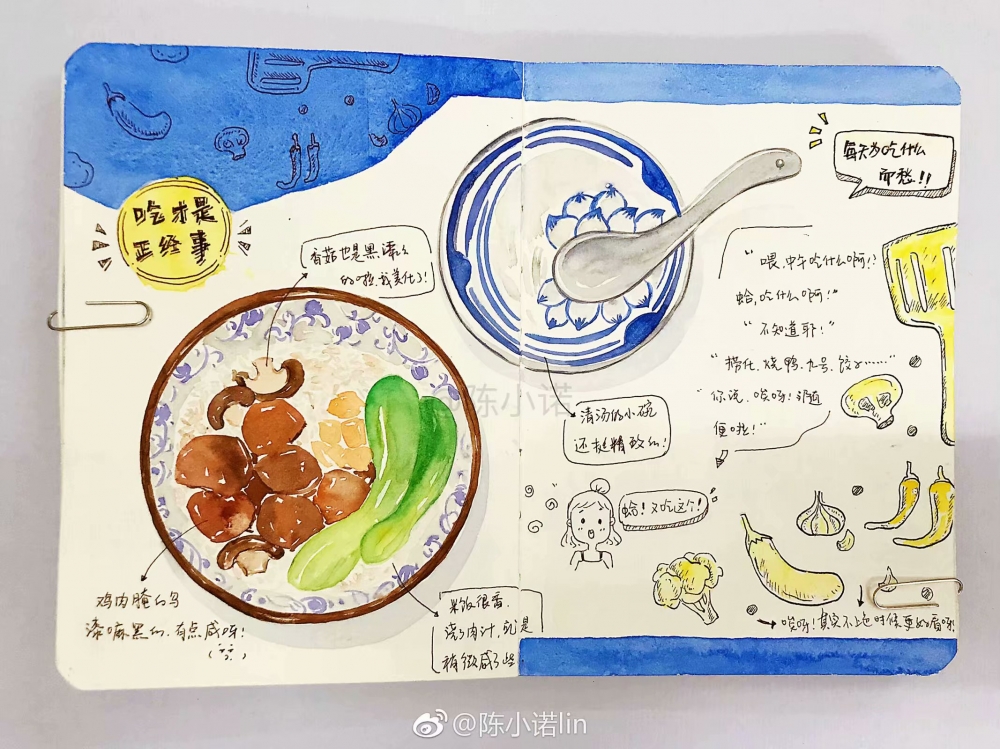 吃才是
正经事
香菇也是黑漆么
的啦,我美化了!
鸡肉腌的乌
漆嘛黑的,有点咸呀!
米饭很香,
浇了肉汁,就是
稍微咸了些
清汤的小碗
还挺精致的!
每天为吃什么
而愁!!
“喂,中午吃什么啊!?
蛤,吃什么啊!”
“不知道耶!”
“捞化、烧鸭、九号、饺子……”
“你说,唉呀!随
便啦!”
蛤!又吃这个!
唉呀!其实不上色时候更好看呀!
@陈小诺
@陈小诺lin